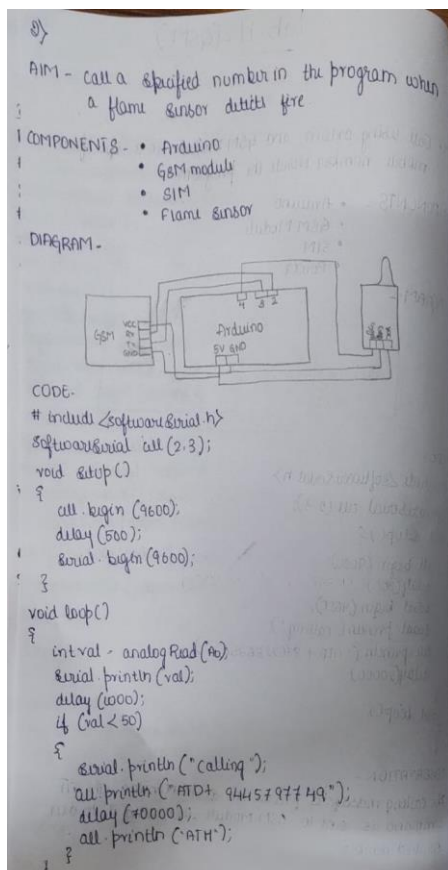 2)
AIM - call a specified number in the program when
a flame sensor detects fire
COMPONENTS - • Arduino
• GSM module
• SIM
• Flame sensor
DIAGRAM -
4 3 2
GSM
VCC
GND
Arduino
5V GND
CODE -
# include <softwareSerial.h>
softwareSerial call (2,3);
void setup()
{
call.begin (9600);
delay (500);
serial.begin (9600);
}
void loop()
{
int val - analogRead (A0)
serial.println (val);
delay (1000);
if (val < 50)
{
serial.println ("calling");
call.println ("ATD+ 9445797749");
delay (70000);
call.println ("ATH");
}